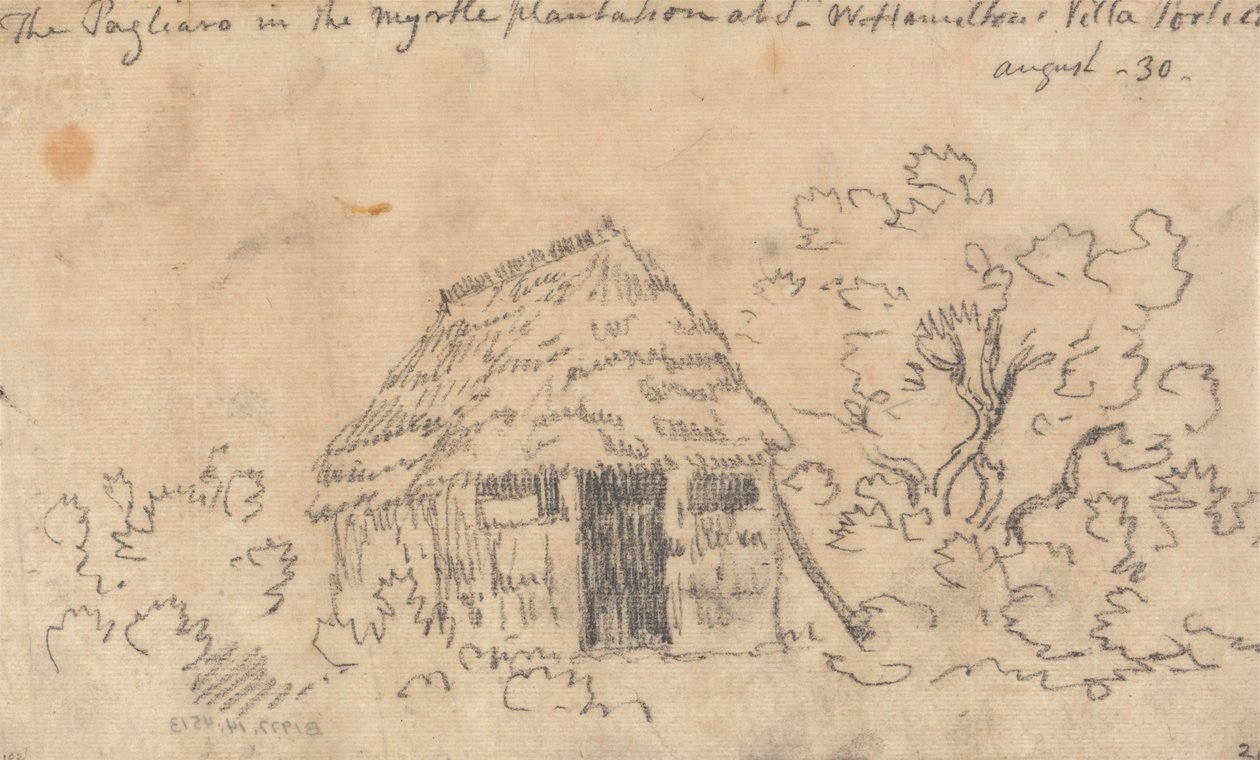 The Pagliaro in the myrtle plantation at Sr W. Hamiltons Villa Portici
august - 30 -
B1977.14.4513
2